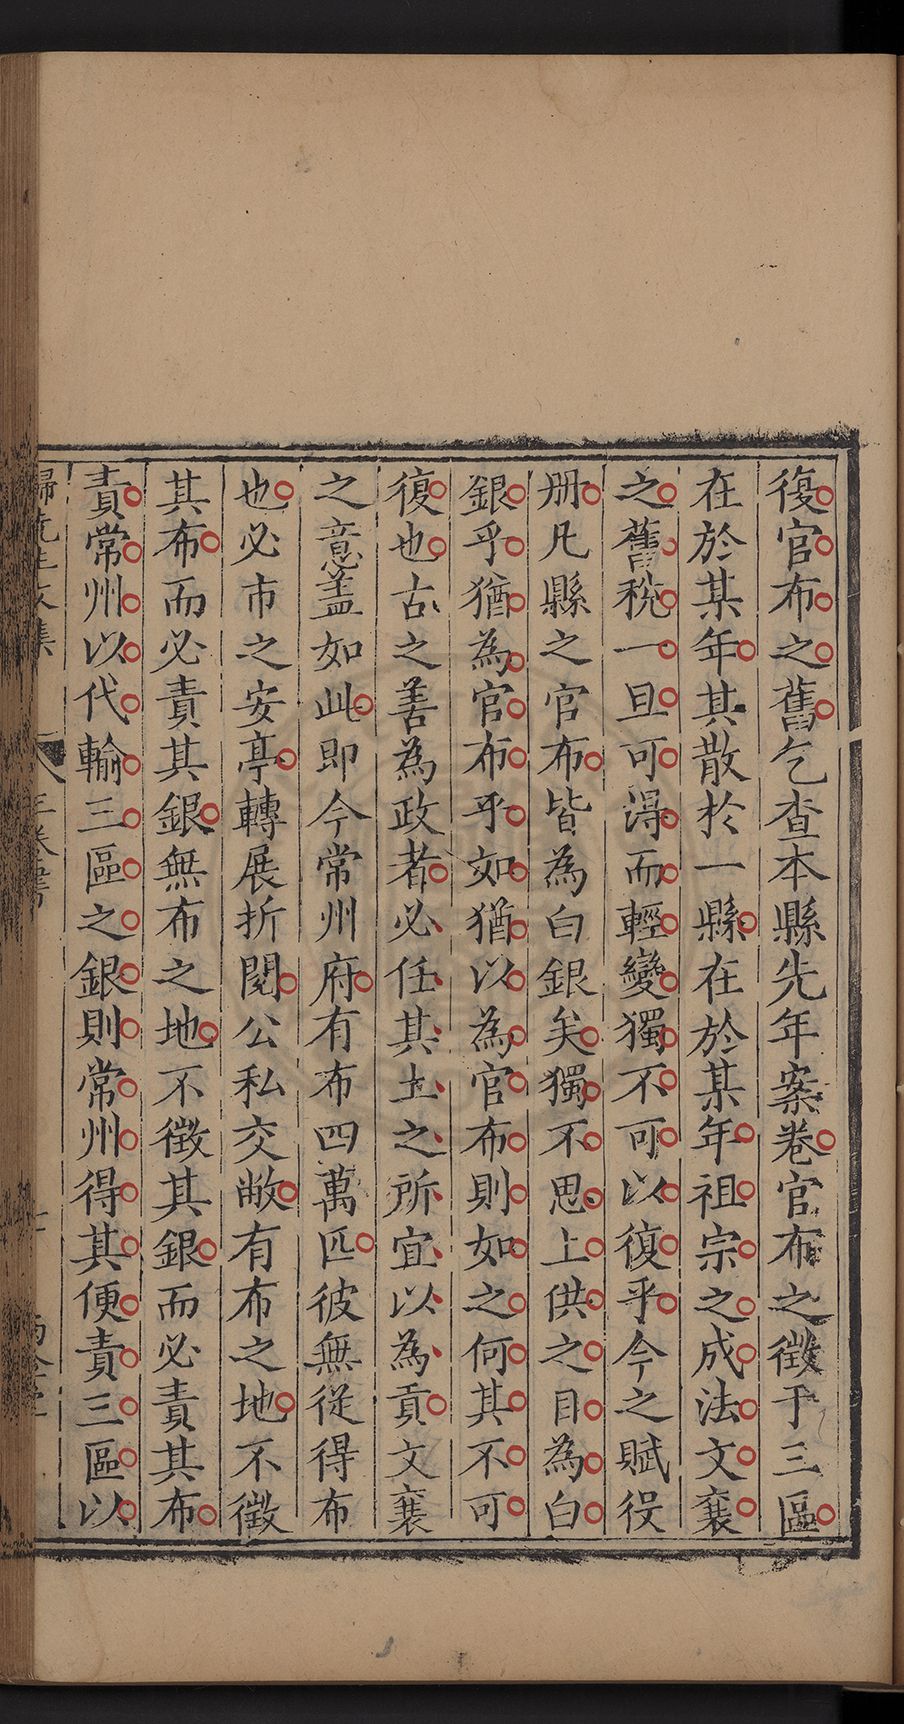 復官布之舊乞查本縣先年案卷官布之徵于三區
在於某年其散於一縣在於某年祖宗之成法文襄
之舊稅一旦可得而輕變獨不可以復乎今之賦役
册凡縣之官布皆為白銀矣獨不思上供之目為白
銀乎猶為官布乎如猶以為官布則如之何其不可
復也古之善為政者必任其土之所宜以為貢文襄
之意盖如此即今常州府有布四萬匹彼無從得布
也必市之安亭轉展折閱公私交敝有布之地不徵
其布而必責其銀無布之地不徵其銀而必責其布
責常州以代輸三區之銀則常州得其便責三區以